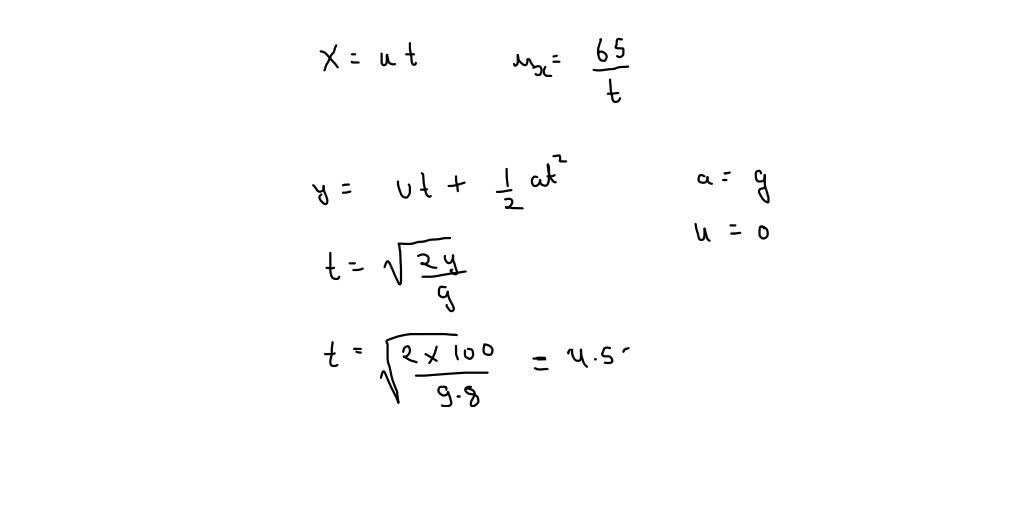 x = ut    uₓ = 65/t
y = ut + 1/2 at²    a = g
u = 0
t = √(2y/g)
t = √(2 × 100/9.8) = 4.5